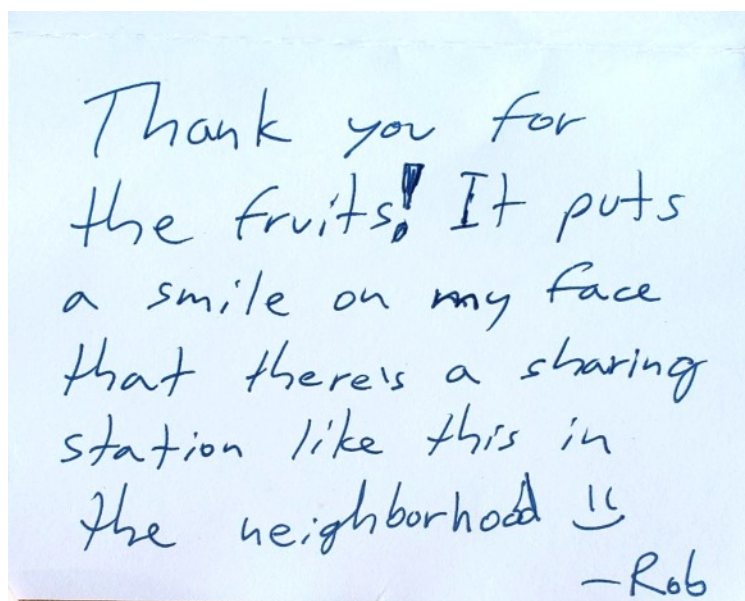 Thank you for
the fruits! It puts
a smile on my face
that there's a sharing
station like this in
the neighborhood :)
-Rob